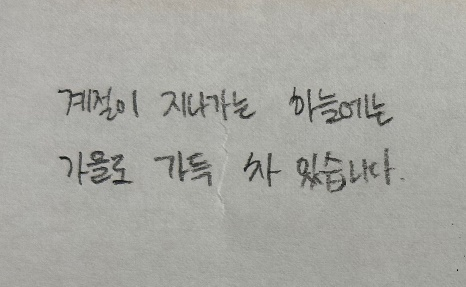 계절이 지나가는 하늘에는
가을로 가득 차 있습니다.